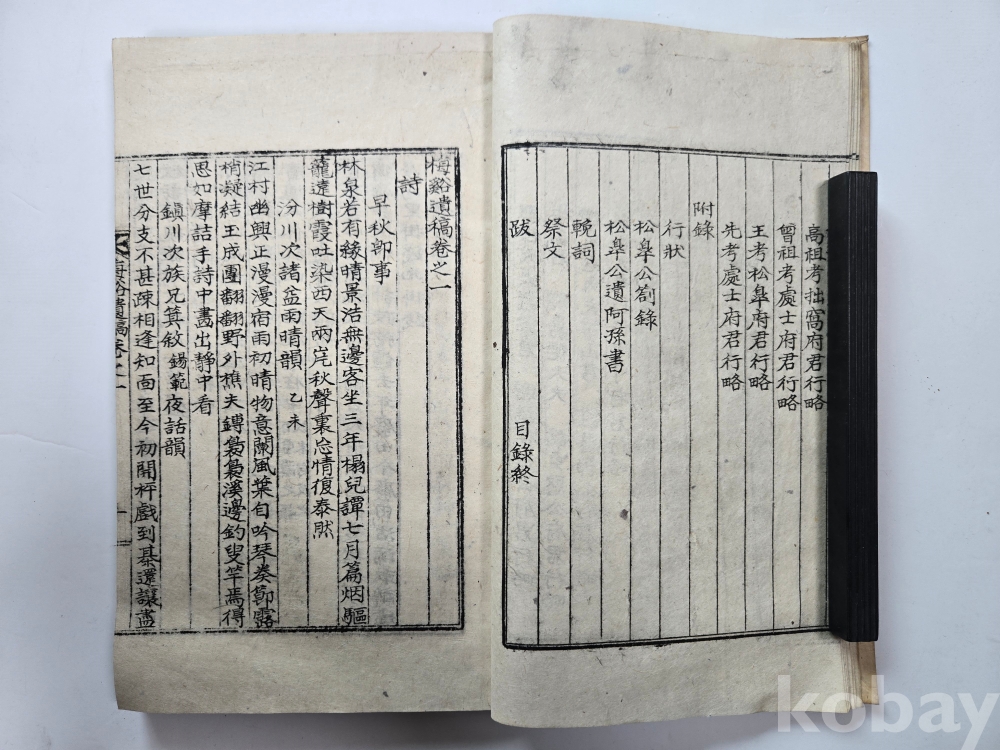 高祖考拙窩府君行略
曾祖考處士府君行略
王考松臯府君行略
先考處士府君行略
附錄
行狀
松臯公劄錄
松臯公遺阿孫書
輓詞
祭文
跋
目錄終
梅谿遺稿卷之一
詩
早秋卽事
林泉若有緣晴景浩無邊客坐三年榻兒譚七月篇烟驅
籠遠樹霞吐染西天兩岸秋聲裏忘情復泰然
汾川次諸益雨晴韻 乙未
江村幽興正漫漫宿雨初晴物意闌風葉自吟琴奏節露
梢凝結玉成團翻翻野外樵夫鎛裊裊溪邊釣叟竿焉得
思如摩詰手詩中畵出靜中看
鎭川次族兄箕敘 錫範夜話韻
七世分支不甚疎相逢知面至今初開枰戲到棊還讓盡
梅谿遺稿卷之一
kobay